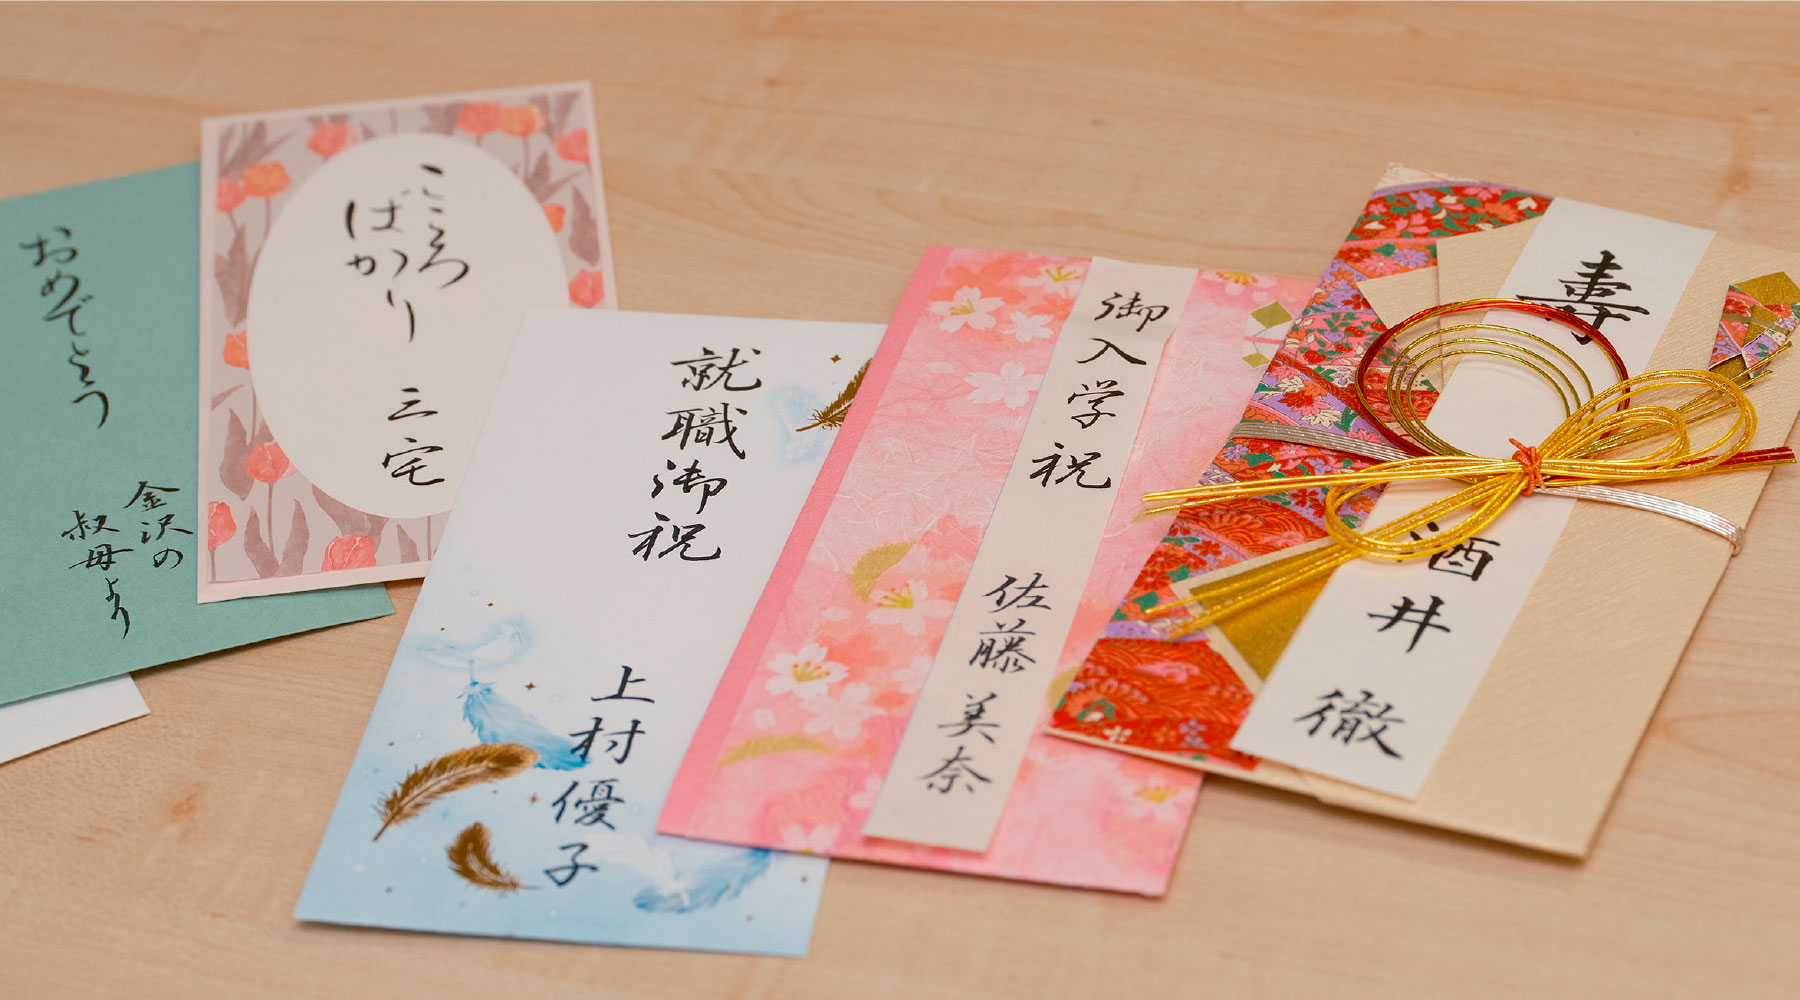 おめでとう
金沢の
叔母より
こころ
ばかり
三宅
就職御祝
上村優子
御入学祝
佐藤美奈
寿
酒井徹